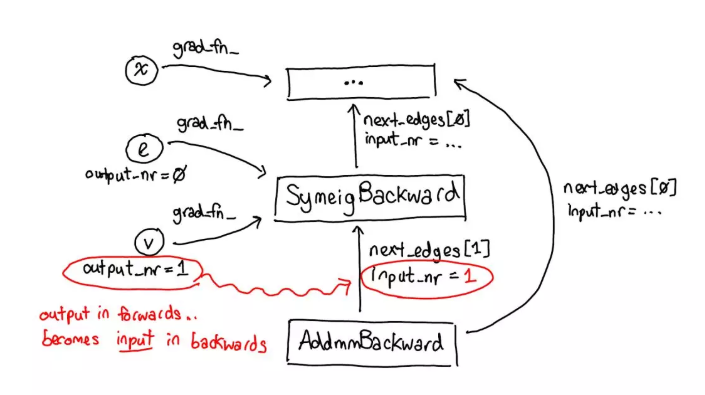 grad_fn_
x
...
next_edges[0]
input_nr = ...
grad_fn_
e
output_nr=0
SymeigBackward
next_edges[0]
input_nr= ...
grad_fn_
v
output_nr=1
next_edges[1]
input_nr = 1
output in forwards..
becomes input in backwards
AddmmBackward